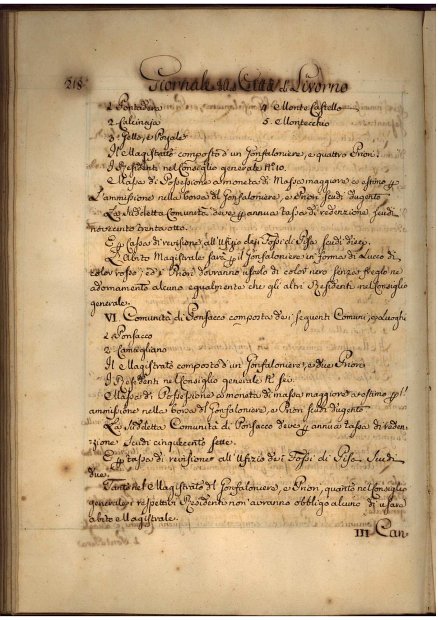 218
Giornale di Città di Livorno
1 Pontedera 4 Monte Castello
2 Calcinaja 5 Montecchio
3 Gello, e Pozzale
Il Magistrato composto d'un Gonfaloniere, e quattro Priori
I Residenti nel Consiglio generale N.° 10.
Massa di Possessione a moneta di Massa maggiore o estimo p
l'ammissione nella borsa del Gonfaloniere, e Priori Scudi dugento
La suddetta Comunità deve p annua tassa di redenzione Scudi
novecento trenta otto.
E p tassa di revisione all'Ufizio dei Fossi di Pisa Scudi dieci.
L'Abito Magistrale sarà p il Gonfaloniere in forma di Lucco di
color rosso; ed i Priori dovranno usarlo di color nero senza fregio ne
adornamento alcuno egualmente che gli altri Residenti nel Consiglio
generale.
VI Comunità di Ponsacco composta de i seguenti Comuni, o Luoghi
1 Ponsacco
2 Camugliano
Il Magistrato composto d'un Gonfaloniere, e due Priori
I Residenti nel Consiglio generale N.° sei.
Massa di Possessione a moneta di massa maggiore o estimo p l'
ammissione nella borsa del Gonfaloniere, e Priori Scudi dugento
La suddetta Comunità di Ponsacco deve p annua tassa di reden
zione Scudi cinquecento sette.
E p tassa di revisione all'Ufizio de i Fossi di Pisa Scudi
due.
Tanto nel Magistrato del Gonfaloniere, e Priori, quanto nel Consiglio
generale i respettivi Residenti non avranno obbligo alcuno di usare
abito Magistrale.
III Can-